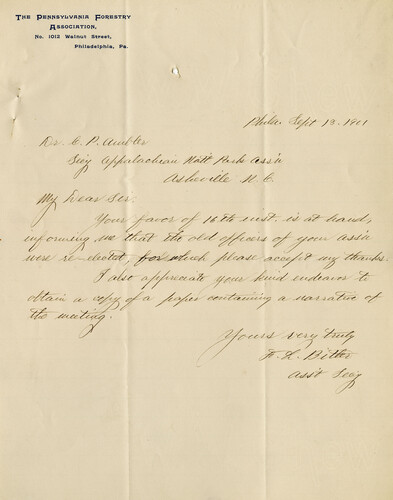 THE PENNSYLVANIA FORESTRY
ASSOCIATION,
No. 1012 Walnut Street,
Philadelphia, Pa.
Phila. Sept 13. 1901
Dr. C. P. Ambler
Secy Appalachian Natl Park Ass'n
Asheville N. C.
My Dear Sir.
Your favor of 10th inst. is at hand,
informing me that the old officers of your ass'n
were re-elected, for which please accept my thanks.
I also appreciate your kind endeavor to
obtain a copy of a paper containing a narrative of
the meeting.
Yours very truly
F. L. Bitler
Asst Secy